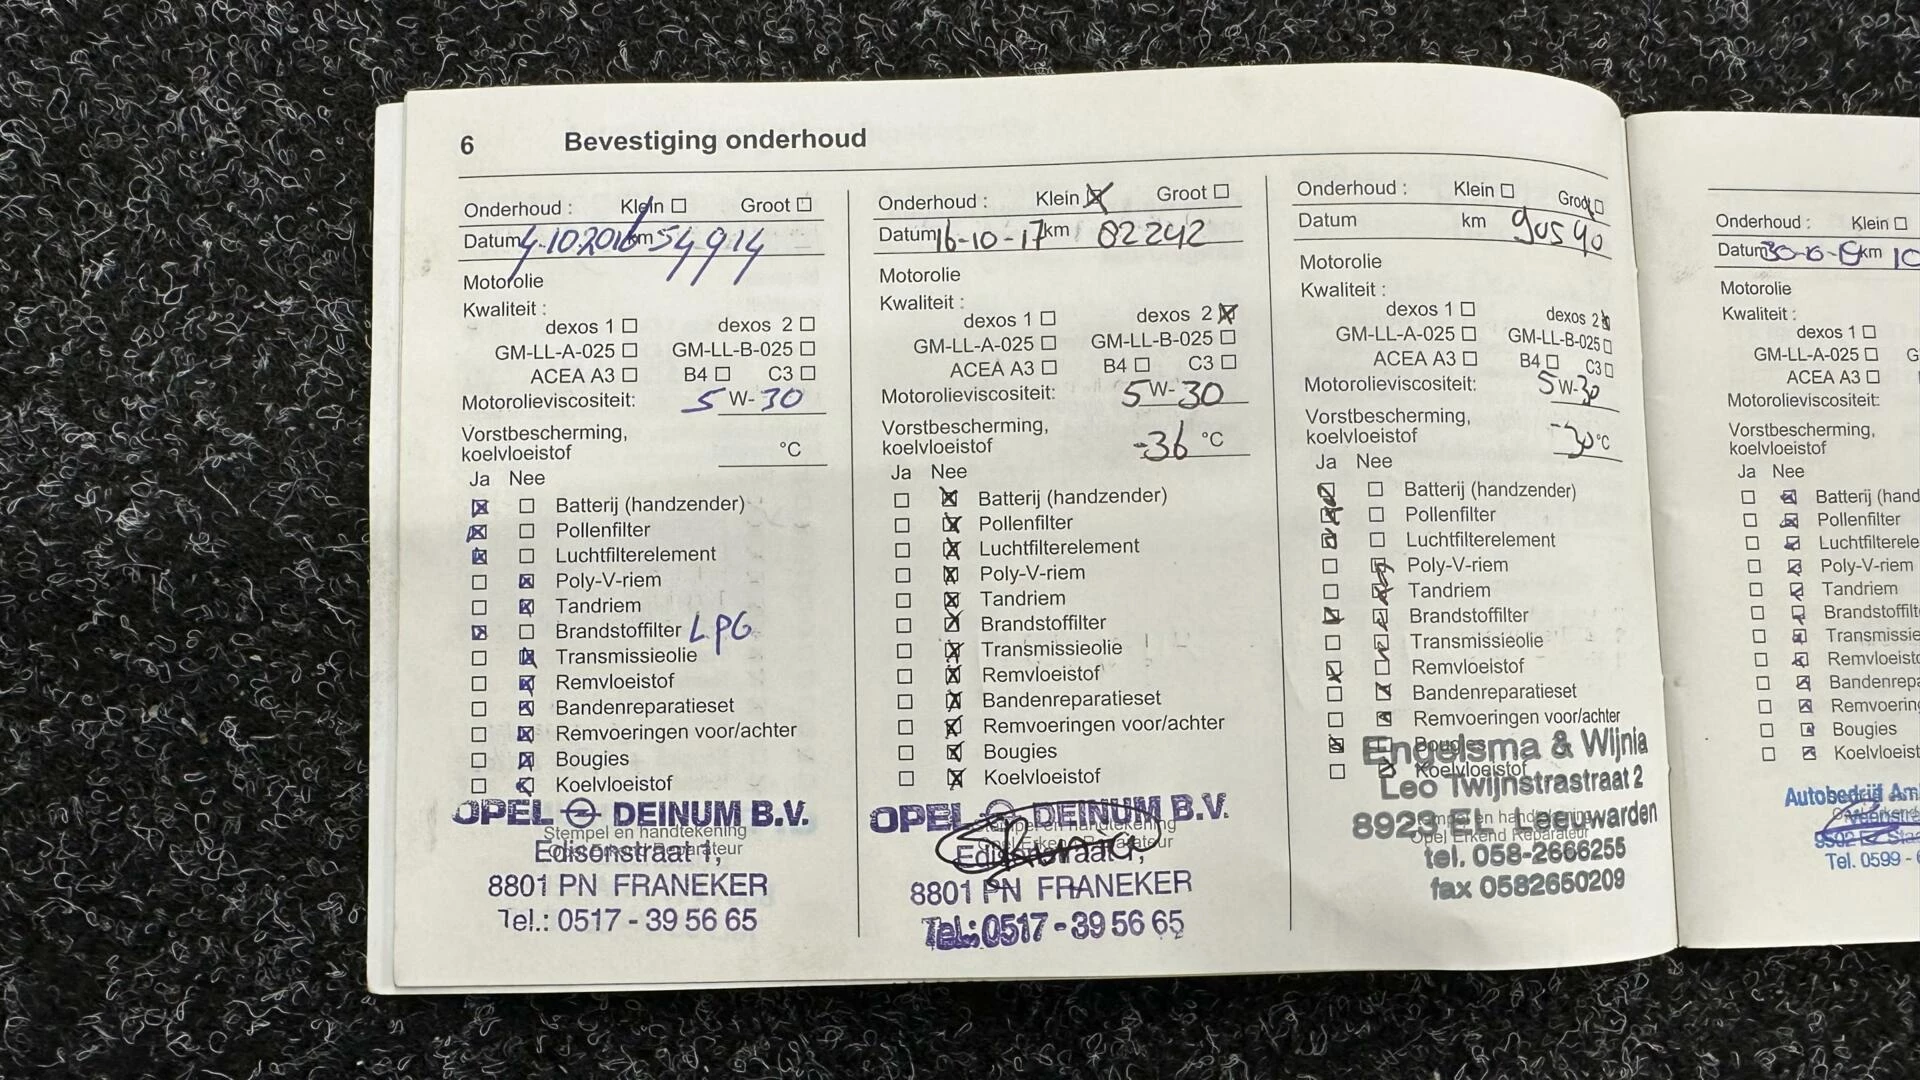 6 Bevestiging onderhoud
Onderhoud : Klein Groot
Datum 4.10.2016 km 54914
Motorolie
Kwaliteit :
dexos 1 dexos 2
GM-LL-A-025 GM-LL-B-025
ACEA A3 B4 C3
Motorolieviscositeit: 5 W- 30
Vorstbescherming,
koelvloeistof °C
Ja Nee
Batterij (handzender)
Pollenfilter
Luchtfilterelement
Poly-V-riem
Tandriem
Brandstoffilter LPG
Transmissieolie
Remvloeistof
Bandenreparatieset
Remvoeringen voor/achter
Bougies
Koelvloeistof
OPEL DEINUM B.V.
Stempel en handtekening
Opel Erkend Reparateur
Edisonstraat 1,
8801 PN FRANEKER
Tel.: 0517 - 39 56 65
Onderhoud : Klein Groot
Datum 16-10-17 km 82242
Motorolie
Kwaliteit :
dexos 1 dexos 2
GM-LL-A-025 GM-LL-B-025
ACEA A3 B4 C3
Motorolieviscositeit: 5 W- 30
Vorstbescherming,
koelvloeistof -36 °C
Ja Nee
Batterij (handzender)
Pollenfilter
Luchtfilterelement
Poly-V-riem
Tandriem
Brandstoffilter
Transmissieolie
Remvloeistof
Bandenreparatieset
Remvoeringen voor/achter
Bougies
Koelvloeistof
OPEL DEINUM B.V.
Stempel en handtekening
Opel Erkend Reparateur
Edisonstraat 1,
8801 PN FRANEKER
Tel.: 0517 - 39 56 65
Onderhoud : Klein Groot
Datum km 90590
Motorolie
Kwaliteit :
dexos 1 dexos 2
GM-LL-A-025 GM-LL-B-025
ACEA A3 B4 C3
Motorolieviscositeit: 5 W-30
Vorstbescherming,
koelvloeistof -30 °C
Ja Nee
Batterij (handzender)
Pollenfilter
Luchtfilterelement
Poly-V-riem
Tandriem
Brandstoffilter
Transmissieolie
Remvloeistof
Bandenreparatieset
Remvoeringen voor/achter
Bougies
Koelvloeistof
Engelsma & Wijnia
Leo Twijnstrastraat 2
Stempel en handtekening
8923 EL Leeuwarden
Opel Erkend Reparateur
tel. 058-2666255
fax 0582650209
Onderhoud : Klein
Datum km 10
Motorolie
Kwaliteit :
dexos 1
GM-LL-A-025 G
ACEA A3
Motorolieviscositeit:
Vorstbescherming,
koelvloeistof
Ja Nee
Batterij (hand
Pollenfilter
Luchtfilterele
Poly-V-riem
Tandriem
Brandstoffilt
Transmissie
Remvloeisto
Bandenrepa
Remvoering
Bougies
Koelvloeist
Autobedrijf Am
Tel. 0599 - 6